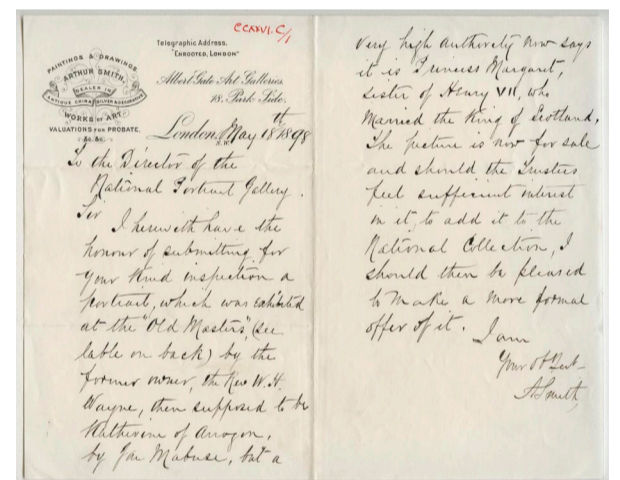 CCXXVI. C/1
Telegraphic Address.
"ENROOTED, LONDON"
PAINTINGS & DRAWINGS
ARTHUR SMITH,
DEALER IN
ANTIQUE CHINA, SILVER & DECORATIVE
WORKS OF ART
VALUATIONS FOR PROBATE.
&c. &c.
Albert Gate Art Galleries.
18. Park Side.
London, May 18th 1898
S.W.
To the Director of the
National Portrait Gallery.
Sir
I herewith have the
honour of submitting for
your kind inspection a
portrait, which was exhibited
at the "Old Masters", (see
lable on back) by the
former owner, the Rev W. H.
Wayne, then supposed to be
Katherine of Arragon,
by Jan Mabuse, but a
very high authority now says
it is Princess Margaret,
sister of Henry VII, who
Married the King of Scotland.
The picture is now for sale
and should the Trustees
feel sufficient interest
in it, to add it to the
National Collection, I
should then be pleased
to make a more formal
offer of it.
I am
Your obt Servt
A Smith,